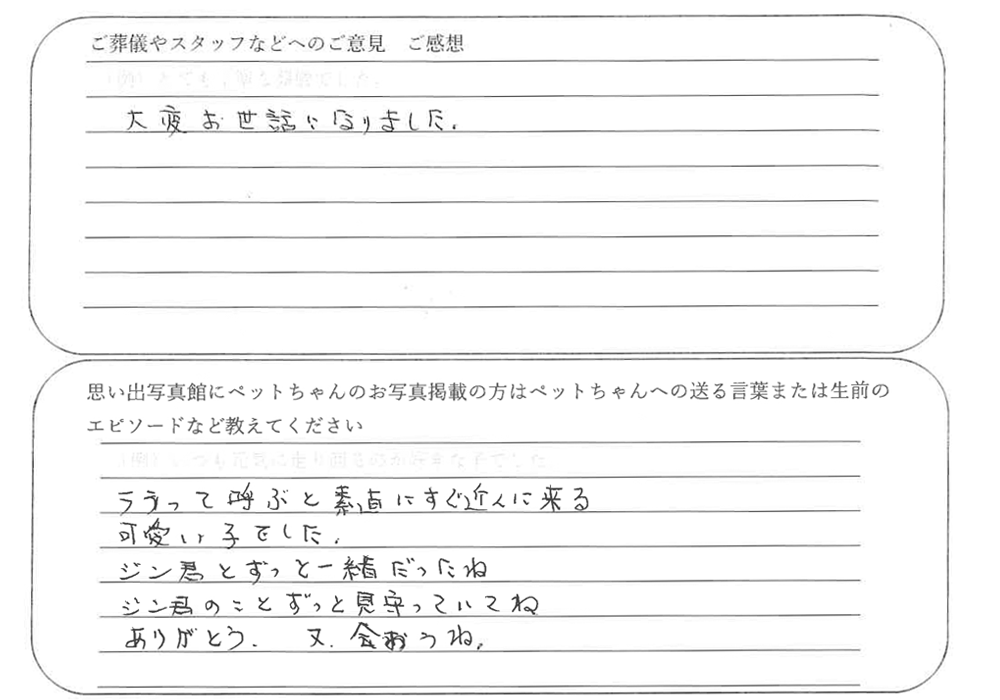 ご葬儀やスタッフなどへのご意見　ご感想
大変お世話になりました.
思い出写真館にペットちゃんのお写真掲載の方はペットちゃんへの送る言葉または生前の
エピソードなど教えてください
(例) いつも元気に走り回るのが好きな子でした
ララって呼ぶと素直にすぐ近くに来る
可愛い子でした.
ジン君とずっと一緒だったね
ジン君のことずっと見守っていてね
ありがとう.　又.会おうね.